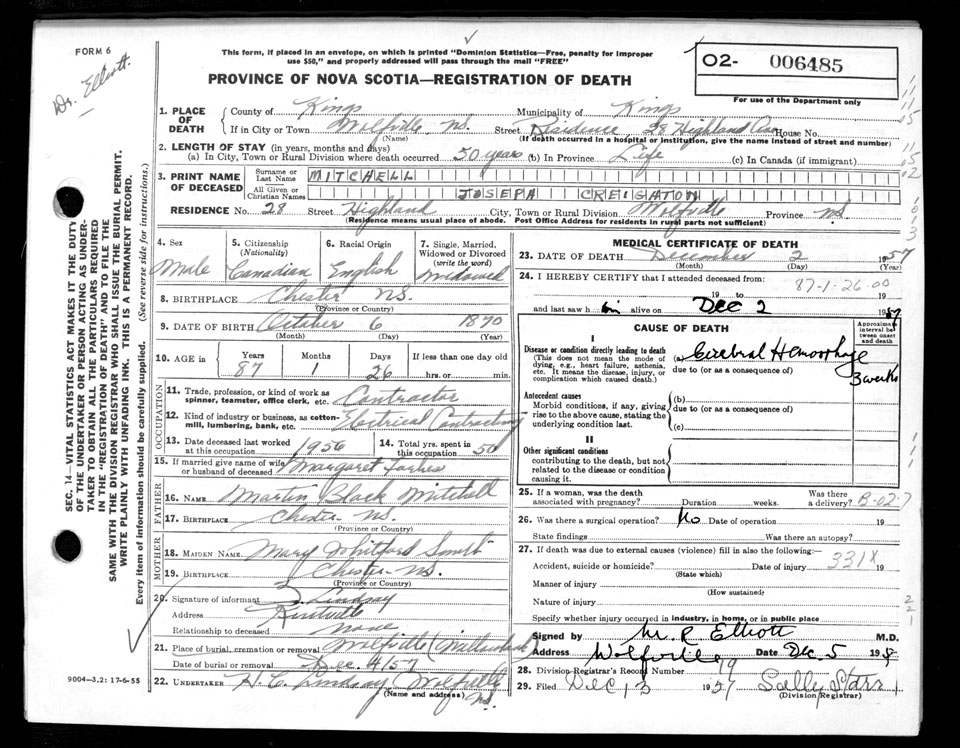 FORM 6
Dr. Elliott.
This form, if placed in an envelope, on which is printed "Dominion Statistics—Free, penalty for improper
use $50," and properly addressed will pass through the mail "FREE"
PROVINCE OF NOVA SCOTIA—REGISTRATION OF DEATH
O2- 006485
For use of the Department only
SEC. 14—VITAL STATISTICS ACT MAKES IT THE DUTY
OF THE UNDERTAKER OR PERSON ACTING AS UNDER-
TAKER TO OBTAIN ALL THE PARTICULARS REQUIRED
IN THE "REGISTRATION OF DEATH" AND TO FILE THE
SAME WITH THE DIVISION REGISTRAR WHO SHALL ISSUE THE BURIAL PERMIT.
WRITE PLAINLY WITH UNFADING INK. THIS IS A PERMANENT RECORD.
Every item of information should be carefully supplied. (See reverse side for instructions.)
1. PLACE OF DEATH
County of Kings Municipality of Kings
If in City or Town Wolfville, N.S. Street Residence, 28 Highland Ave House No.
(Name) (If death occurred in a hospital or institution, give the name instead of street and number)
2. LENGTH OF STAY (in years, months and days)
(a) In City, Town or Rural Division where death occurred 50 years (b) In Province Life (c) In Canada (if immigrant)
3. PRINT NAME OF DECEASED
Surname or Last Name MITCHELL
All Given or Christian Names JOSEPH CREIGHTON
RESIDENCE No. 28 Street Highland City, Town or Rural Division Wolfville Province N.S.
(Residence means usual place of abode. Post Office Address for residents in rural parts not sufficient)
4. Sex Male
5. Citizenship (Nationality) Canadian
6. Racial Origin English
7. Single, Married, Widowed or Divorced (write the word) Widowed
8. BIRTHPLACE Chester N.S.
(Province or Country)
9. DATE OF BIRTH October 6 1870
(Month) (Day) (Year)
10. AGE in Years 87 Months 1 Days 26 If less than one day old hrs. or min.
OCCUPATION
11. Trade, profession, or kind of work as spinner, teamster, office clerk, etc. Contractor
12. Kind of industry or business, as cotton-mill, lumbering, bank, etc. Electrical Contracting
13. Date deceased last worked at this occupation 1956
14. Total yrs. spent in this occupation 50
15. If married give name of wife or husband of deceased Margaret Forbes
FATHER
16. NAME Martin Black Mitchell
17. BIRTHPLACE Chester N.S.
(Province or Country)
MOTHER
18. MAIDEN NAME Mary Whitford Smith
19. BIRTHPLACE Chester N.S.
(Province or Country)
20. Signature of informant Lindsay
Address Kentville
Relationship to deceased None
21. Place of burial, cremation or removal Wolfville (Willowbank)
Date of burial or removal Dec. 4/57
22. UNDERTAKER H. C. Lindsay Wolfville N.S.
(Name and address)
9004—3.2: 17-6-55
MEDICAL CERTIFICATE OF DEATH
23. DATE OF DEATH December 2 1957
(Month) (Day) (Year)
24. I HEREBY CERTIFY that I attended deceased from:
87-1-26-00
19 to 19
and last saw him alive on Dec 2 1957
CAUSE OF DEATH
Approximate interval between onset and death
I
Disease or condition directly leading to death
(This does not mean the mode of dying, e.g., heart failure, asthenia, etc. It means the disease, injury, or complication which caused death.)
(a) Cerebral Hemorrhage
due to (or as a consequence of)
3 weeks
Antecedent causes
Morbid conditions, if any, giving rise to the above cause, stating the underlying condition last.
(b)
due to (or as a consequence of)
(c)
II
Other significant conditions
contributing to the death, but not related to the disease or condition causing it.
25. If a woman, was the death associated with pregnancy? Duration weeks. Was there a delivery? B-02-7
26. Was there a surgical operation? No Date of operation 19
State findings Was there an autopsy?
27. If death was due to external causes (violence) fill in also the following:—
Accident, suicide or homicide? Date of injury 331X 19
(State which)
Manner of injury
(How sustained)
Nature of injury
Specify whether injury occurred in industry, in home, or in public place
Signed by M. R. Elliott M.D.
Address Wolfville Date Dec. 5 19
28. Division Registrar's Record Number 79
29. Filed Dec 13 1957 Sally Starr
(Division Registrar)